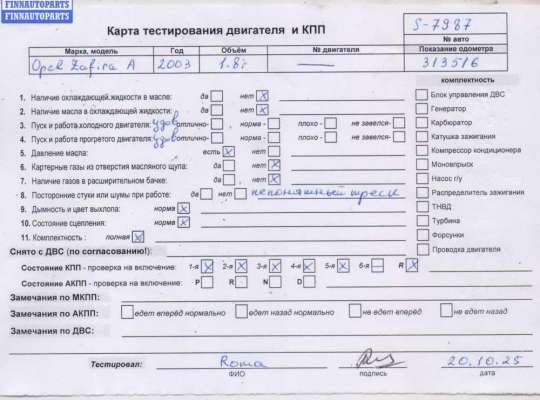 FINNAUTOPARTS
FINNAUTOPARTS
Карта тестирования двигателя и КПП
S-7987
№ авто
Марка, модель Год Объём № двигателя Показание одометра
Opel Zafira A 2003 1.8i — 313516
комплектность
1. Наличие охлаждающей жидкости в масле: да нет X
Блок управления ДВС
2. Наличие масла в охлаждающей жидкости: да нет X
Генератор
3. Пуск и работа холодного двигателя: удов отлично- норма - плохо - не завелся-
Карбюратор
4. Пуск и работа прогретого двигателя: удов отлично- норма - плохо - не завелся-
Катушка зажигания
5. Давление масла: есть X нет
Компрессор кондиционера
6. Картерные газы из отверстия масляного щупа: да нет X
Моновпрыск
7. Наличие газов в расширительном бачке: да нет X
Насос г/у
8. Посторонние стуки или шумы при работе: да нет непонятный треск
Распределитель зажигания
9. Дымность и цвет выхлопа: норма X
ТНВД
10. Состояние сцепления: норма X
Турбина
11. Комплектность : полная X
Форсунки
Снято с ДВС (по согласованию!):
Проводка двигателя
Состояние КПП - проверка на включение: 1-я X 2-я X 3-я X 4-я X 5-я X 6-я — R X
Состояние АКПП - проверка на включение: P R N D
Замечания по МКПП:
Замечания по АКПП: едет вперёд нормально едет назад нормально не едет вперёд не едет назад
Замечания по ДВС:
Тестировал: Roma 20.10.25
ФИО подпись дата